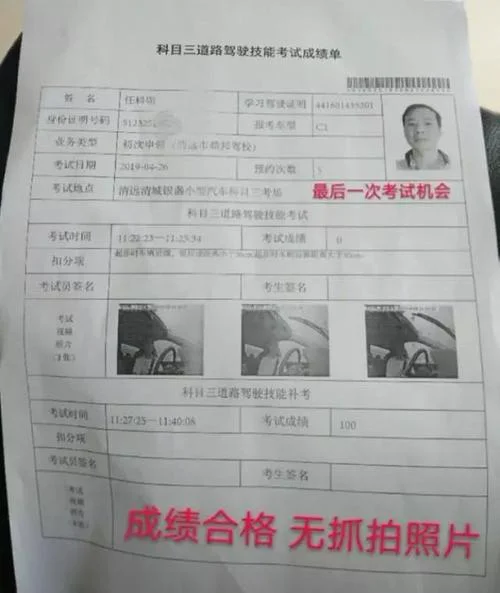 科目三道路驾驶技能考试成绩单
姓 名
学习驾驶证明 441601435201
身份证明号码
报考车型 C1
业务类型 初次申领
考试日期 2019-04-26 预约次数 5
考试地点 清远清城银盏小型汽车科目三考场
最后一次考试机会
科目三道路驾驶技能考试
考试时间 考试成绩 0
扣分项
考试员签名 考生签名
考试
视频
照片
(3张)
科目三道路驾驶技能补考
考试时间 11:27:25—11:40:08 考试成绩 100
扣分项
考试员签名 考生签名
考试
视频
照片
成绩合格 无抓拍照片